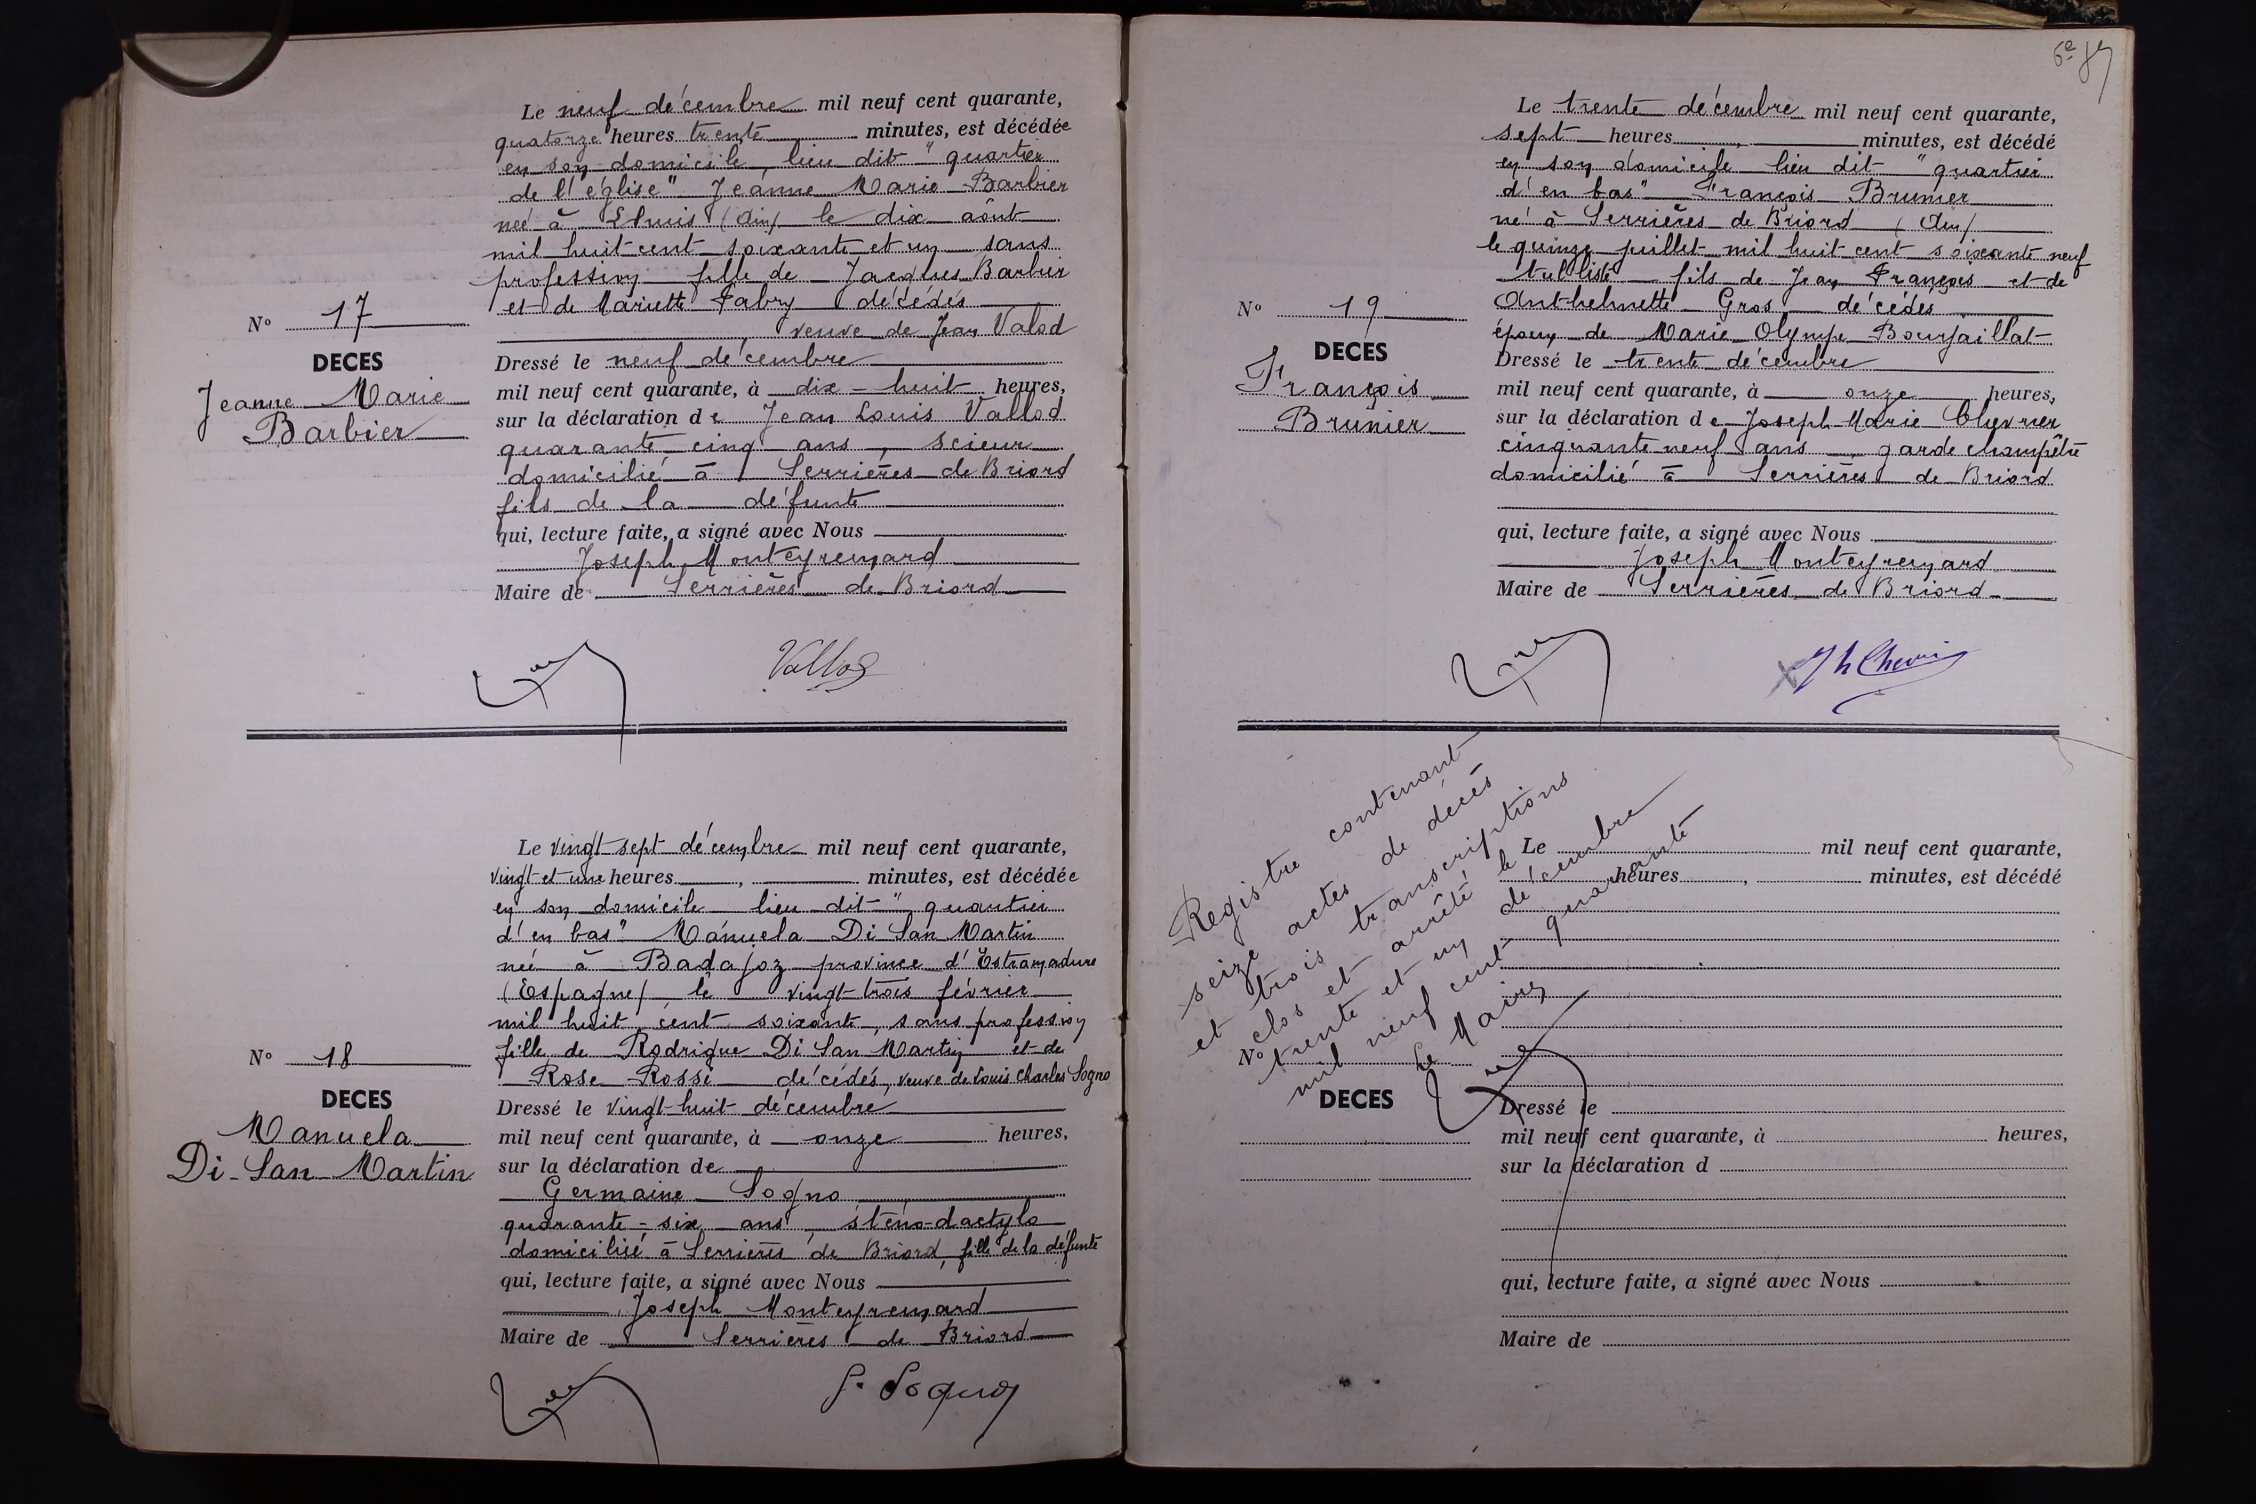 Le neuf décembre mil neuf cent quarante,
quatorze heures trente minutes, est décédée
en son domicile lieu dit "quartier
de l'église" Jeanne Marie Barbier
née à Lhuis (Ain) le dix août
mil huit cent soixante et un sans
profession fille de Jacques Barbier
et de Mariette Fabry décédés
veuve de Jean Valod
No 17
DECES
Jeanne Marie
Barbier
Dressé le neuf décembre
mil neuf cent quarante, à dix-huit heures,
sur la déclaration de Jean Louis Vallod
quarante cinq ans, scieur
domicilié à Serrières de Briord
fils de la défunte
qui, lecture faite, a signé avec Nous
Joseph Monteyremard
Maire de Serrières de Briord
Vallod
Le vingt sept décembre mil neuf cent quarante,
vingt et une heures, minutes, est décédée
en son domicile lieu dit "quartier
d'en bas" Manuela Di San Martin
née à Badajoz province d'Estramadure
(Espagne) le vingt-trois février
mil huit cent soixante, sans profession
fille de Rodrigue Di San Martin et de
Rose Rossi décédés, veuve de Louis Charles Sogno
No 18
DECES
Manuela
Di-San-Martin
Dressé le vingt-huit décembre
mil neuf cent quarante, à onze heures,
sur la déclaration de
Germaine Sogno
quarante-six ans, sténo-dactylo
domicilié à Serrières de Briord, fille de la défunte
qui, lecture faite, a signé avec Nous
Joseph Monteyremard
Maire de Serrières de Briord
G. Sogno
6e
Le trente décembre mil neuf cent quarante,
sept heures, minutes, est décédé
en son domicile lieu dit "quartier
d'en bas" François Brunier
né à Serrières de Briord (Ain)
le quinze juillet mil huit cent soixante neuf
tulliste fils de Jean François et de
Anthelmette Gros décédés
époux de Marie Olympe Bourjaillat
No 19
DECES
François
Brunier
Dressé le trente décembre
mil neuf cent quarante, à onze heures,
sur la déclaration de Joseph Marie Chevrier
cinquante neuf ans, garde champêtre
domicilié à Serrières de Briord
qui, lecture faite, a signé avec Nous
Joseph Monteyremard
Maire de Serrières de Briord
Registre contenant
seize actes de décès
et trois transcriptions
clos et arrêté le
trente et un décembre
mil neuf cent quarante
Le Maire
Le mil neuf cent quarante,
heures, minutes, est décédé
No
DECES
Dressé le
mil neuf cent quarante, à heures,
sur la déclaration d
qui, lecture faite, a signé avec Nous
Maire de